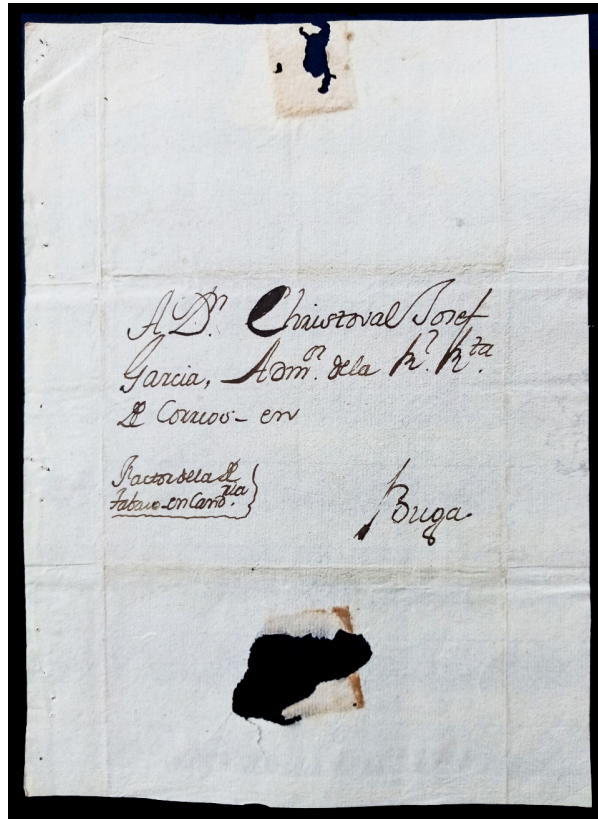 A Dⁿ. Christoval Josef
Garcia, Admᵒʳ. dela Rˡ. Rᵗᵃ.
de Correos - en
Factor dela de
Tabaco en Candᵉˡᵃʳⁱᵃ.
Buga.